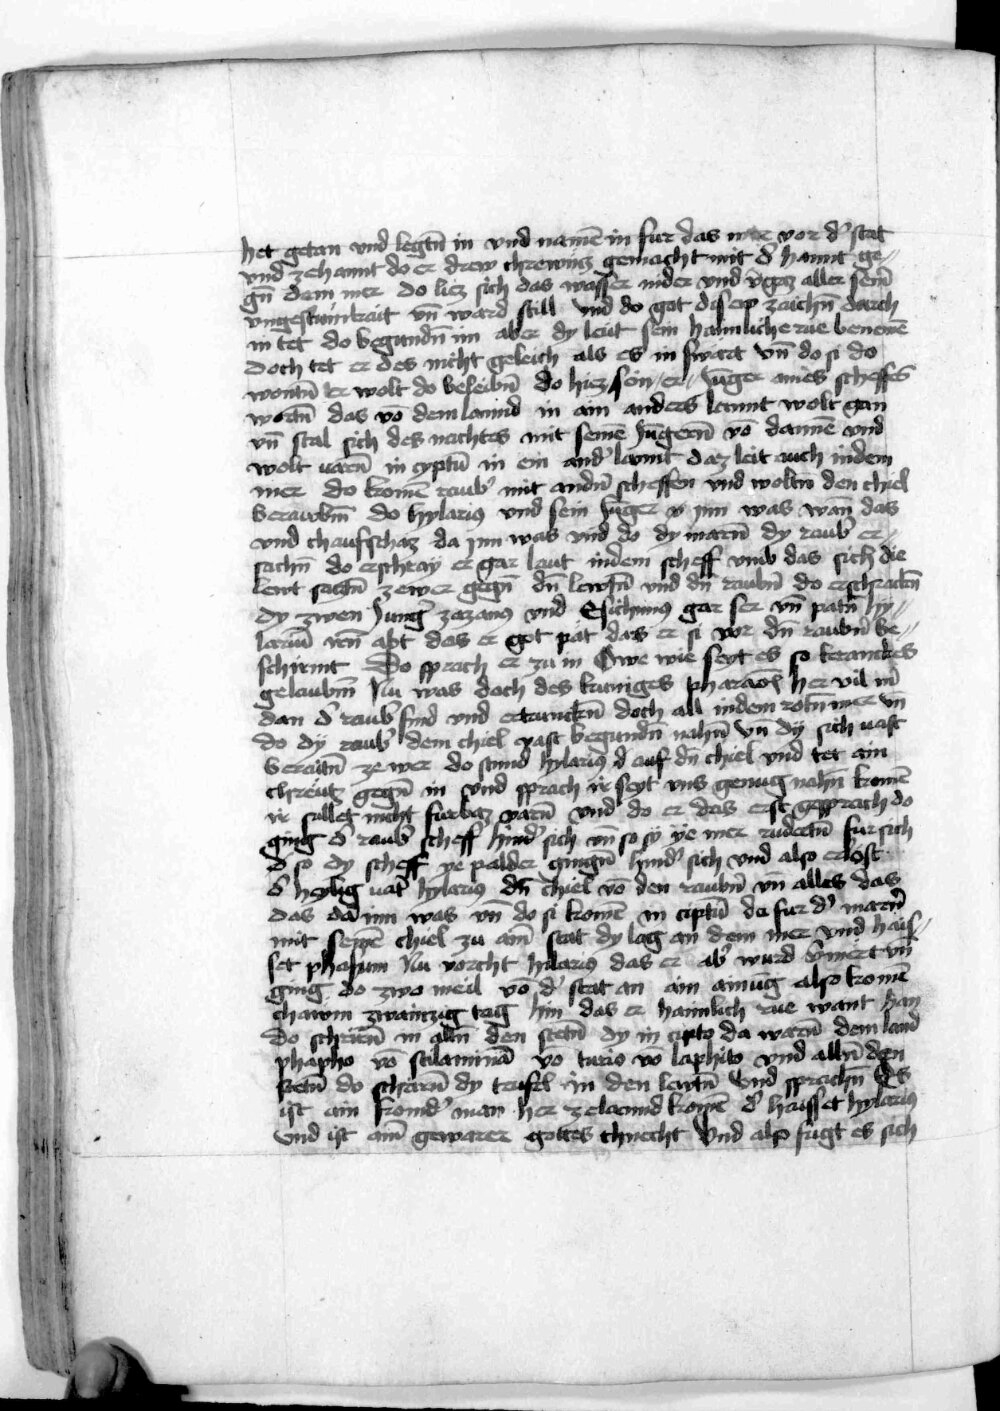 het getan vnd legtn̄ in vnd namē in fur das mer vor dˀ stat
vnd zehannt do er drew chrewtz gemacht mit dˀ hannt ge⸗
gn̄ dem mer do liez sich das wasser nider vnd vˀgaz aller seinˀ
vngestumkait vn̄ ward still vnd do got diser zaichn̄ durch
in tet do begundn̄ im aber dy leut sein haimliche rue benemē
doch tet er des nicht geleich als es in swart vn̄ do si do
wontn̄ er wolt do beleibn̄ do hiez sein er Iūger aines scheffes
wartn̄ das vō dem lannd in ain anders lannt wolt gan
vn̄ stal sich des nachtes mit seinē Iūgern̄ vō dannē vnd
wolt uarn̄ in cyptū in ein andˀ lannt daz leit auch in dem
mer do komē raubˀ mit andn̄ scheffen vnd woltn̄ den chiel
beraubn̄ do hylariꝰ vnd sein Iūger inn was wan̄ das
vnd chaufschaz da inn was vnd do dy marn̄ dy raubˀ er⸗
sachn̄ do erschray er gar laut in dem scheff vmb das sich die
lewt saztn̄ ze wer gegn̄ dn̄ lewtn̄ vnd dn̄ raubn̄ do erschrackn̄
dy zwen Iungˀ zazanꝰ vnd Esichimꝰ gar ser vn̄ patn̄ hy⸗
lariū irn̄ abt das er got pāt das er si vor dn̄ raubn̄ be⸗
schirmt Do sprach er zu in Owe wie seyt es so kranckes
gelaubn̄ Nu was doch des kuniges pharaōs her vil mˀ
dan dˀ raubˀ sind vnd ertrunckn̄ doch all in dem rotn̄ mer vn̄
do dy raubˀ dem chiel vast begundn̄ nahn̄ vn̄ dy sich vast
beraitn̄ ze wer do stund hylariꝰ auf dn̄ chiel vnd tet ain
chreutz gegn̄ in vnd sprach ir seyt vns genug nahn̄ komē
ir sullet nicht furbaz varn̄ vnd do er das erst gesprach do
ging dˀ raubˀ scheff hindˀ sich vn̄ so sy ye mer rudertn̄ fur sich
so dy scheff ye palder gingn̄ hindˀ sich vnd also erlost
dˀ heylig uatˀ hylariꝰ dn̄ chiel vō den raubn̄ vn̄ alles das
das da inn was vn̄ do si komē in ciptū da fur dˀ marnˀ
mit seinē chiel zu ainˀ stat dy lag an dem mer vnd hais⸗
set phasum Nu vorcht hilariꝰ das er abˀ wurd gemert vn̄
ging do zwo meil vō dˀ stat an ain ainūg also komē
chawm zwaintzig tag hin das er haimlich rue want han
do schrien̄ in alln̄ den stetn̄ dy in cipto da warn̄ dem land
phapho vō stilaminā vō turio vō laphito vnd alln̄ den
stetn̄ do schrarn̄ dy teufel in den lewtn̄ vnd sprachn̄ Es
ist ain fromdˀ man her ze lannd komē dˀ haisset hylariꝰ
vnd ist ainˀ gewarer gottes chnecht Vnd also fugt es sich